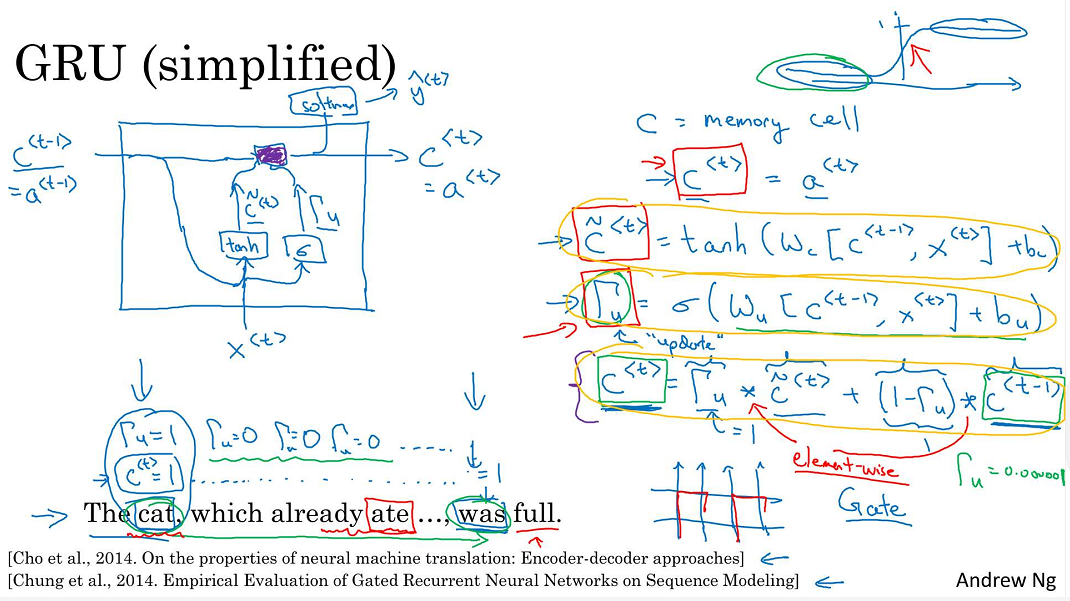 GRU (simplified)
softmax → ŷ<t>
c<t-1>
= a<t-1>
c̃<t>
Γu
tanh
σ
c<t>
= a<t>
x<t>
1
c = memory cell
→ c<t> = a<t>
→ c̃<t> = tanh (Wc [c<t-1>, x<t>] + bc)
→ Γu = σ (Wu [c<t-1>, x<t>] + bu)
"update"
c<t> = Γu * c̃<t> + (1-Γu) * c<t-1>
= 1
element-wise
Gate
Γu = 0.000001
Γu=1 Γu=0 Γu=0 Γu=0 .....
c<t>=1 .......... = 1
The cat, which already ate …, was full.
[Cho et al., 2014. On the properties of neural machine translation: Encoder-decoder approaches]
[Chung et al., 2014. Empirical Evaluation of Gated Recurrent Neural Networks on Sequence Modeling]
Andrew Ng